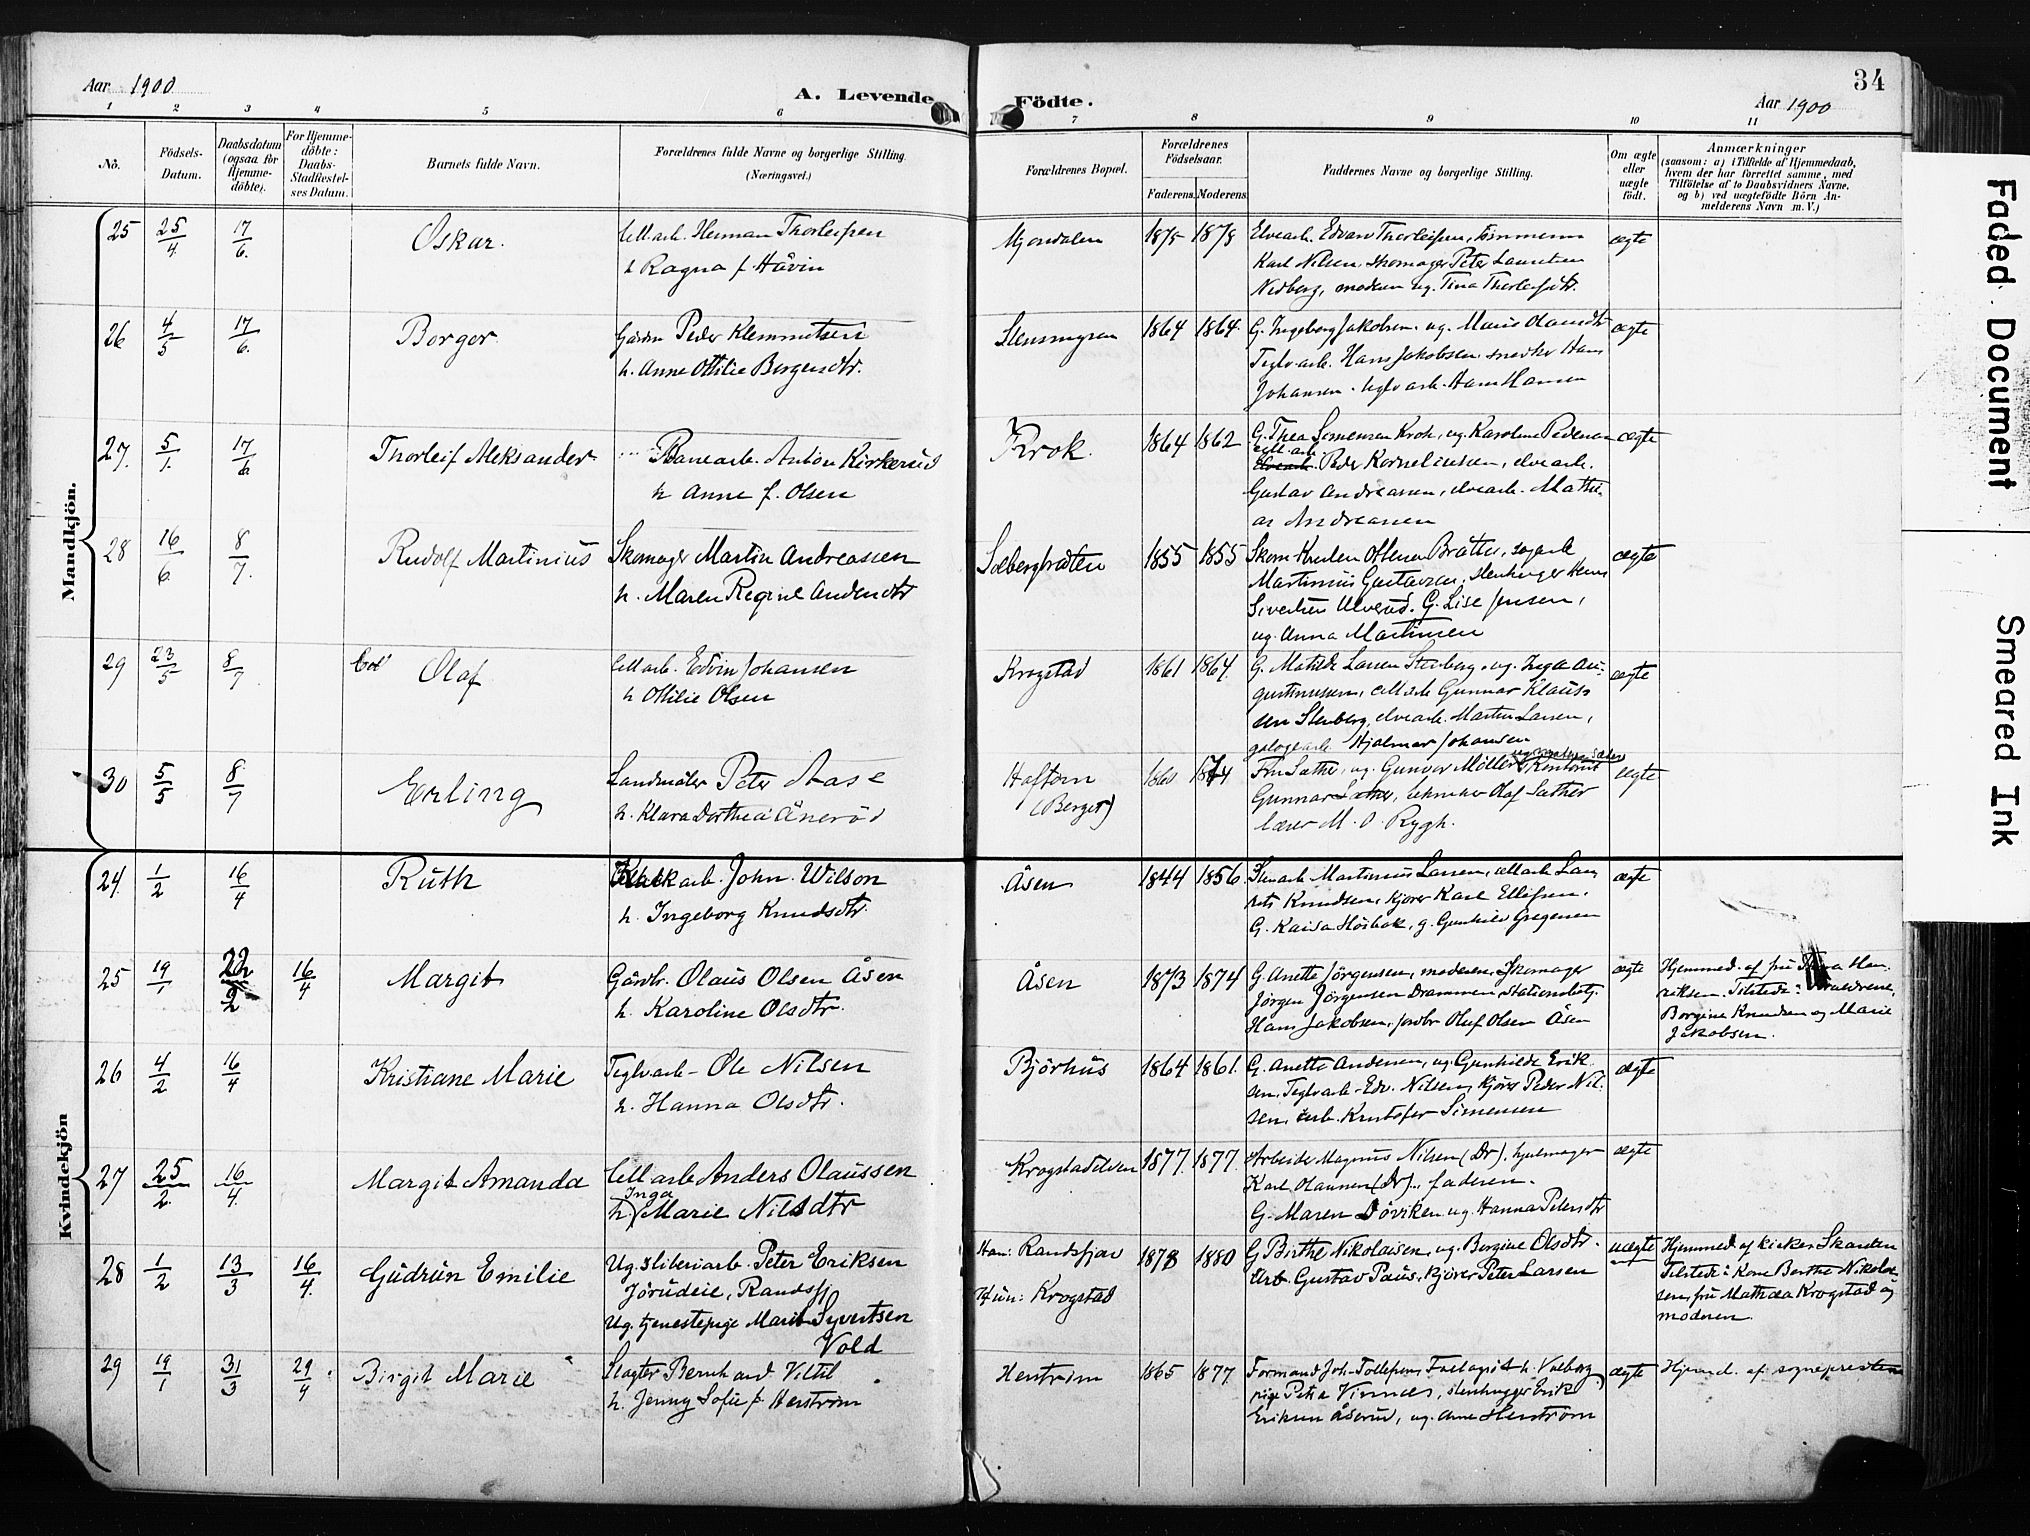 Aar 1900
A. Levende Födte.
34
Aar 1900
1 2 3 4 5 6 7 8 9 10 11
No.
Födsels-Datum.
Daabsdatum (ogsaa for Hjemmedöbte).
For Hjemmedöbte: Daabs-Stadfæstelses Datum.
Barnets fulde Navn.
Forældrenes fulde Navne og borgerlige Stilling. (Næringsvei.)
Forældrenes Bopæl.
Forældrenes Födselsaar.
Faderens. Moderens.
Faddernes Navne og borgerlige Stilling.
Om ægte eller uægte födt.
Anmærkninger
(saasom: a) i Tilfælde af Hjemmedaab,
hvem der har forrettet samme, med
Tilföielse af to Daabsvidners Navne,
og b) ved uægtefödte Börn Anmelderens Navn m. V.)
Mandkjön.
25 25/4 17/6 Oskar.
Cell.arb. Herman Thorleifsen
h Ragna f. Håvin
Mjondalen 1875 1878
Elvearb. Edvard Thorleifsen, Tömmerm
Karl Nilsen, skomager Peter Lauritsen
Nedberg, moderen ug. Tina Thorleifsdtr.
ægte
26 4/5 17/6 Borger
Gårdm Peder Klemmetsen
h. Anne Ottilie Borgersdtr.
Stensmyren 1864 1864.
G. Ingeborg Jakobsen. ug. Marie Olausdtr
Teglv.arb. Hans Jakobsen. snedker Hans
Johansen. teglv.arb. Hans Hansen
ægte
27. 5/1. 17/6 Thorleif Aleksander
Banearb. Anton Kirkerud
h Anne f. Olsen
Krok. 1864 1862
G. Thea Simensen Krok, ug. Karoline Pedersen
cell.arb. Peder Korneliussen, elvearb.
Gustav Andreassen, elvearb. Mathi-
as Andreassen
ægte
28 16/6 8/7. Rudolf Martinius
Skomager Martin Andreassen
h. Maren Regine Andersdtr
Solbergbråten 1855 1855
Martinius Gustavsen, stenhugger Hans
Sivertsen Ulverud. G. Lise Jensen,
ug. Anna Martinsen
ægte
29 23/5 8/7 Olaf
Cell.arb. Edvin Johansen
h Ottilie Olsen
Krogstad 1861 1864.
G. Matilde Larsen Stenberg. ug. Inga Au-
gustinussen, cell.arb Gunnar Klaus-
sen Stenberg, elvearb. Martin Larsen,
Hjalmar Johansen
ægte
30 5/5 8/7 Erling
Landmåler Peter Aase
h. Klara Dorthea Ånerød
Haftorn
(Berger)
Fru Sæther, ug. Gunvor Möller, Kontorist
Gunnar Sæther, tekniker Olaf Sæther
lærer M. O. Rygh.
ægte
Kvindekjön
24 1/2 16/4 Ruth
Kalkarb. John Wilson
h. Ingeborg Knudsdtr.
Åsen 1844 1856.
Martinius Larsen, cell.arb Lau-
rits Knudsen, kjører Karl Ellefsen.
G. Kaisa Høibak, g. Gunhild Gregersen
ægte
25 19/1 22/2 16/4 Margit
Gårdbr. Olaus Olsen Åsen
h. Karoline Olsdtr.
Åsen 1873 1874
G. Anette Jörgensen, moderen, Skomager
Jörgen Jörgensen Drammen, Stationsbetj.
Hans Jakobsen, gårdbr Oluf Olsen Åsen
ægte
Hjemmed. af fru Thea Hen-
riksen. Tilstede: Forældrene,
Borgine Knudsen og Marie
Jakobsen.
26 4/2 16/4 Kristiane Marie
Teglv.arb. Ole Nilsen
h. Hanna Olsdtr.
Björhus 1864 1861.
G. Anette Andersen, ug. Gunhilde Erik-
sen. Teglv.arb. Edv. Nilsen, kjører Peder Nil-
sen, arb. Kristofer Simensen
ægte
27 25/2. 16/4. Margit Amanda
Cell arb Anders Olaussen
Inga
h. Marie Nilsdtr
Krogstadelven 1877. 1877.
Arbeider Magnus Nilsen (Dr). hjulmager
Karl Olaussen (Dr).. faderen.
G. Maren Döviken, ug. Hanna Petersdtr
ægte
28 1/2 13/3 16/4. Gudrun Emilie
Ug. sliberiarb. Peter Eriksen
Jörudeie, Randsfj
Ug. tjenestepige Marit Syvertsen
Vold
Han: Randsfjor
Hun: Krogstad
1878 1880
G Birthe Nikolaisen, ug. Borgine Olsdtr.
Arb. Gustav Paus, kjører Peter Larsen
uægte
Hjemmed. af kirkes. Skarsten
Tilstede: Kone Berthe Nikolai-
sen, fru Mathea Krogstad og
moderen.
29 19/1 31/3 29/4 Birgit Marie
Slagter Bernhard Viltil
h. Jenny Sofie f. Herstrøm
Herstrøm 1865 1877.
Formand Joh. Tollefsen
pige Petra Vinnes, stenhugger Erik
Eriksen Åserud, ug. Anne Herstrøm
ægte
Hjemmed. af sognepresten
Faded Document
Smeared Ink